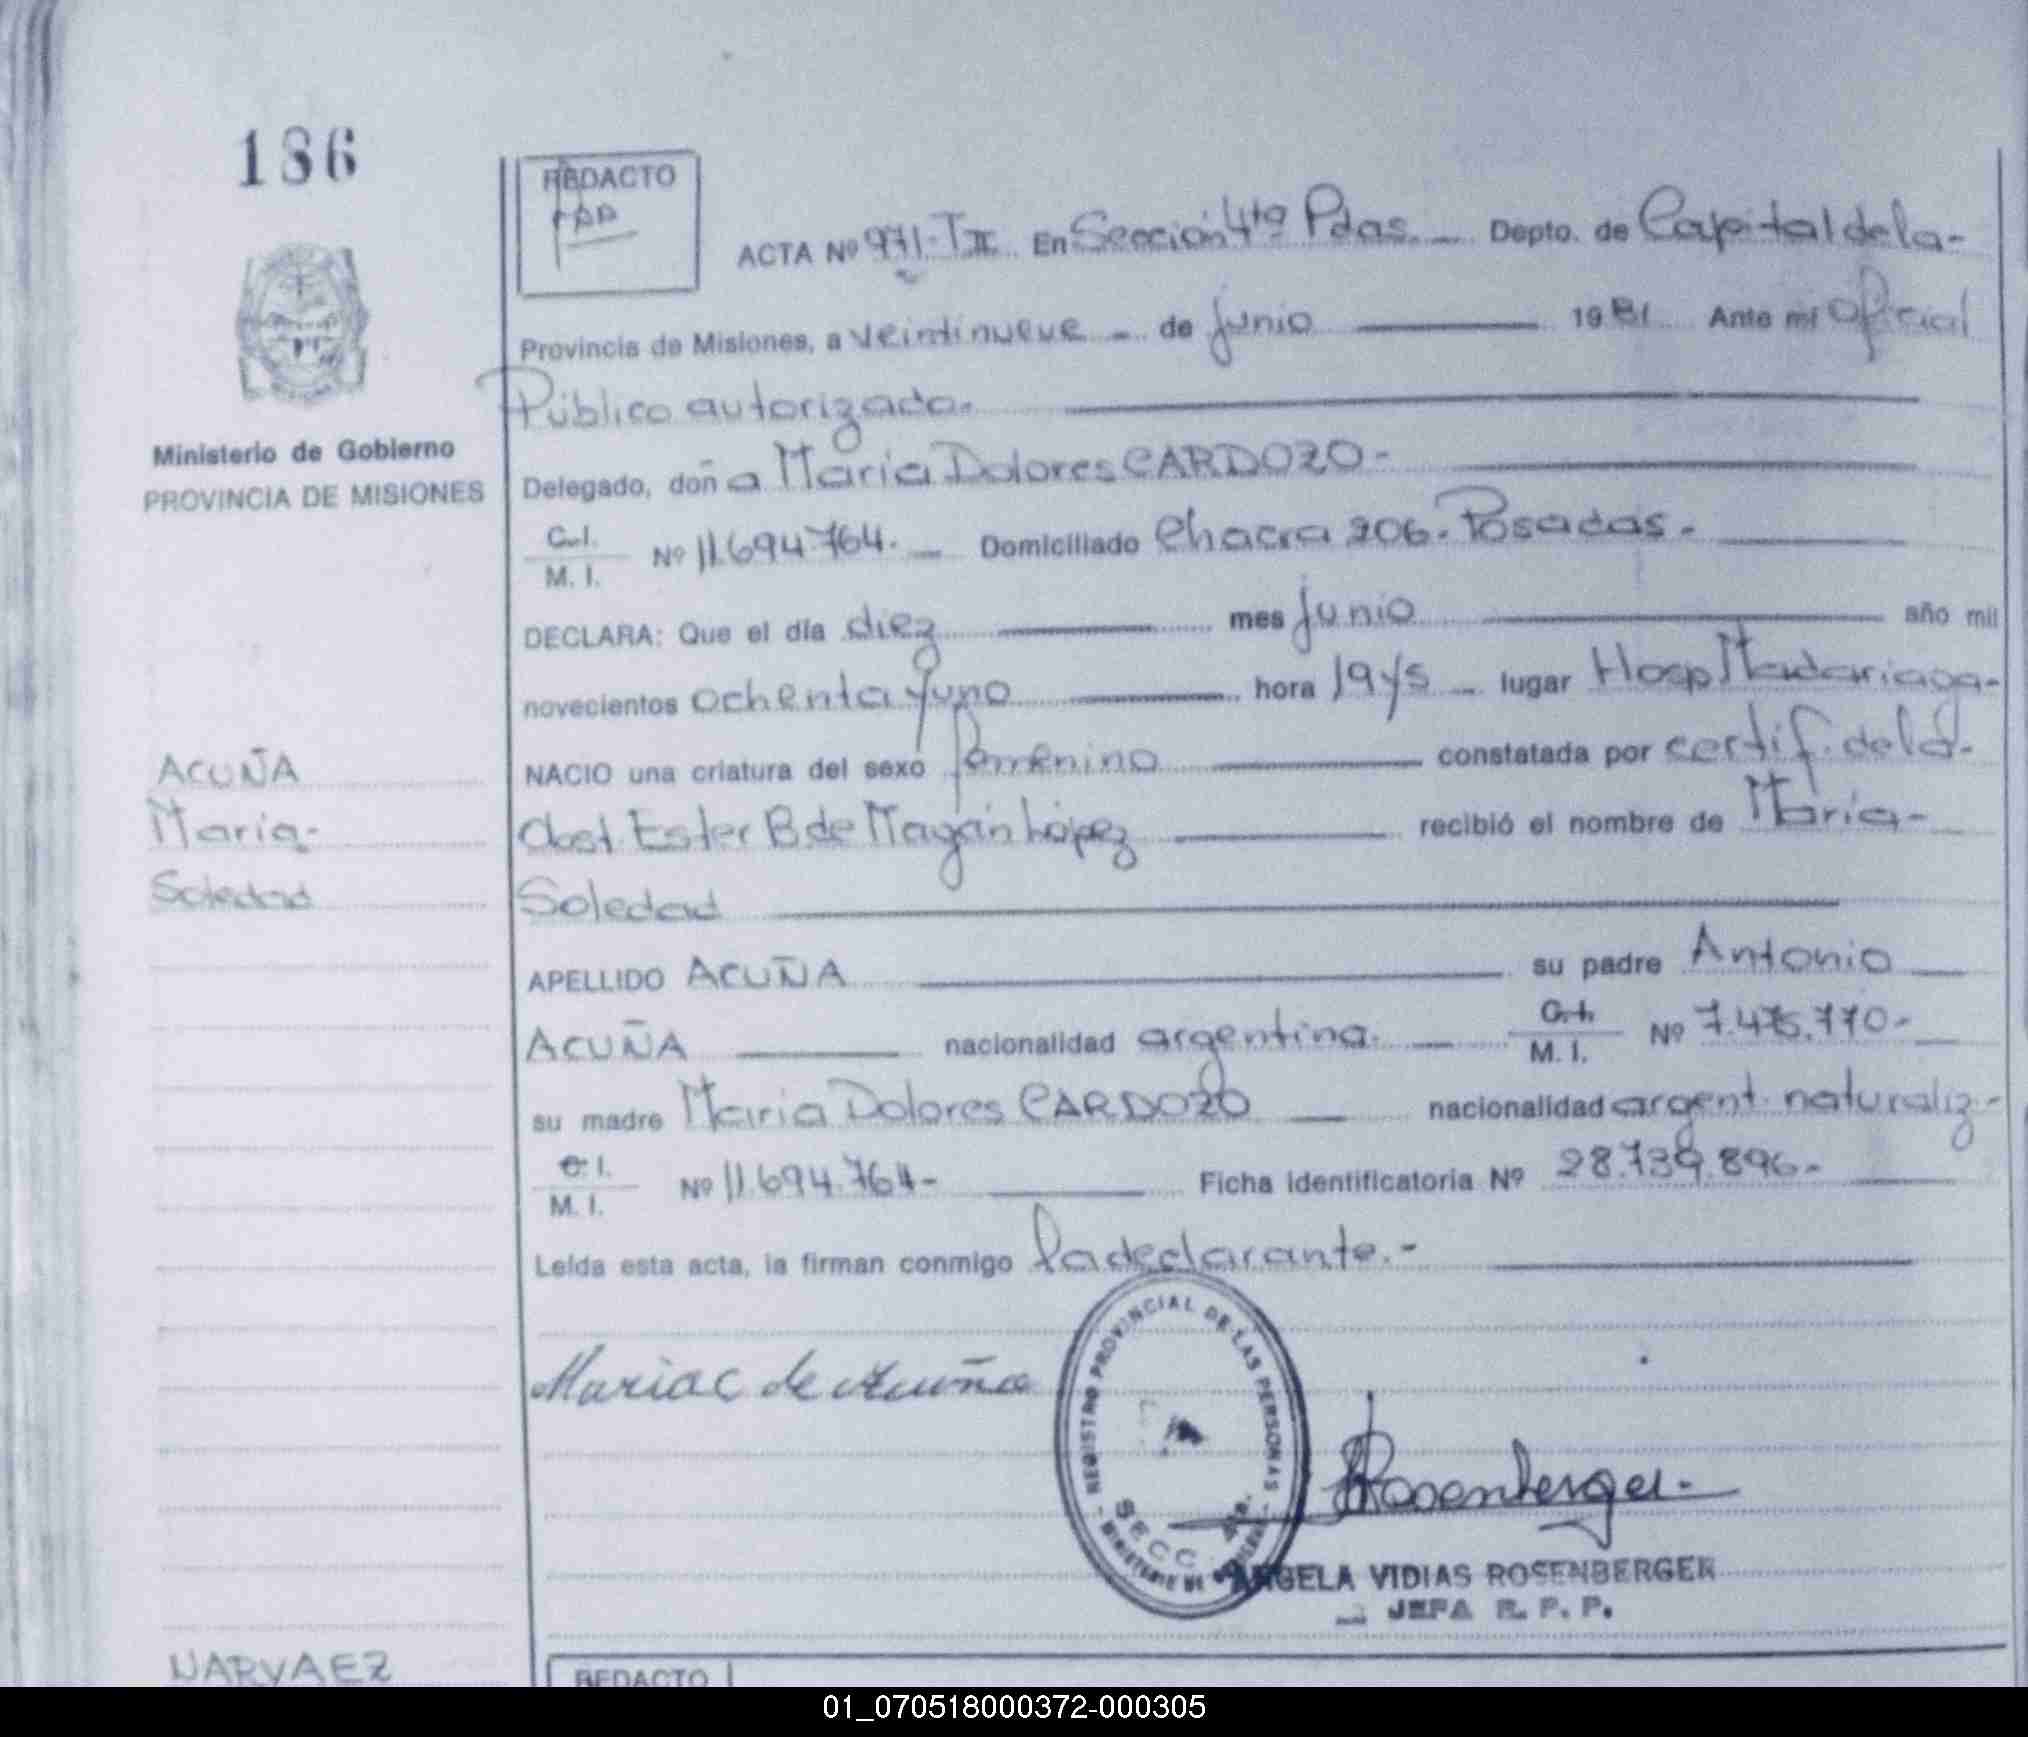 186
REDACTO
ACTA Nº 971-T II En Sección 4ta Pdas. Depto. de Capital de la-
Provincia de Misiones, a veintinueve - de junio 1981 Ante mí Oficial
Público autorizado.
Ministerio de Gobierno
PROVINCIA DE MISIONES
Delegado, doña Maria Dolores CARDOZO-
C.I.
M. I. Nº 11.694.764. Domiciliado Chacra 206. Posadas.-
DECLARA: Que el día diez mes junio año mil
novecientos ochenta y uno hora 19 y 5 lugar Hosp Madariaga-
NACIO una criatura del sexo femenino constatada por certif. de la-
Obst. Ester B. de Mayán López recibió el nombre de María-
Soledad
ACUÑA
María-
Soledad
APELLIDO ACUÑA su padre Antonio
ACUÑA nacionalidad argentina. C.I.
M. I. Nº 7.475.770-
su madre Maria Dolores CARDOZO nacionalidad argent. naturaliz-
C.I.
M. I. Nº 11.694.764- Ficha identificatoria Nº 28.739.896-
Leída esta acta, la firman conmigo la declarante.-
Maria C de Acuña
REGISTRO PROVINCIAL DE LAS PERSONAS
SECC. 4ta.
MINISTERIO DE GOBIERNO
Rosenberger.-
ANGELA VIDIAS ROSENBERGER
JEFA R. P. P.
NARVAEZ
REDACTO
01_070518000372-000305